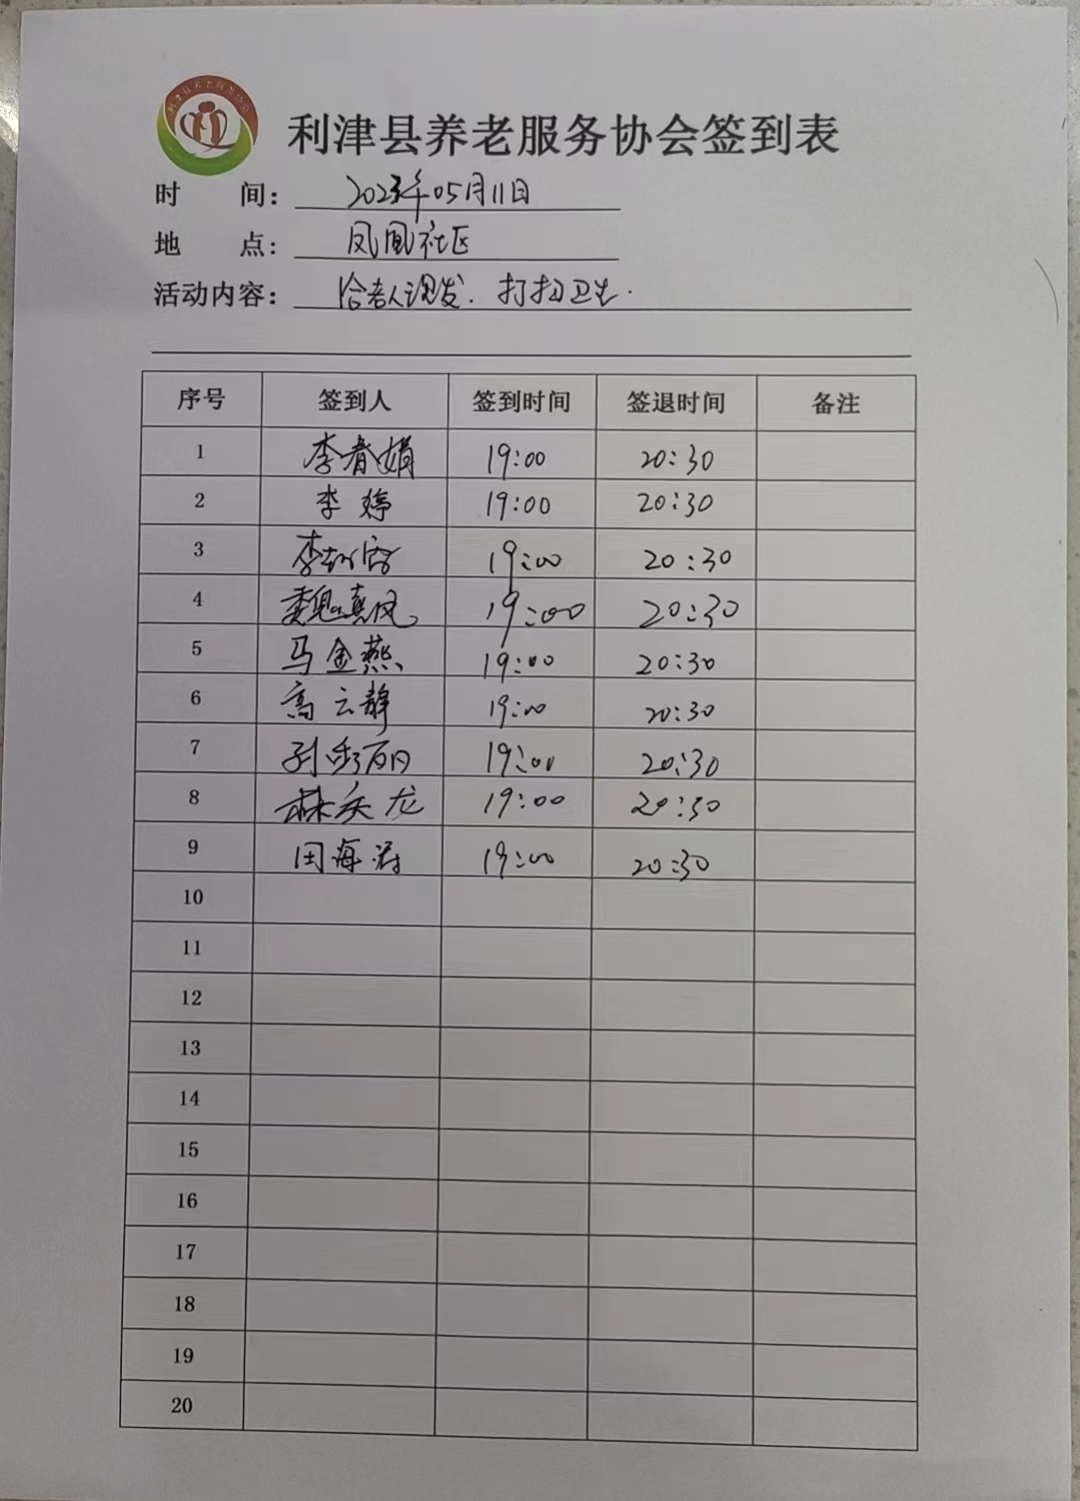 利津县养老服务协会
利津县养老服务协会签到表
时 间： 2023年05月11日
地 点： 凤凰社区
活动内容： 给老人理发. 打扫卫生.
序号 签到人 签到时间 签退时间 备注
1 李春娟 19:00 20:30
2 李婷 19:00 20:30
3 李 19:00 20:30
4 魏真风 19:00 20:30
5 马金燕 19:00 20:30
6 高云静 19:00 20:30
7 孙秀丽 19:00 20:30
8 林庆龙 19:00 20:30
9 田海涛 19:00 20:30
10
11
12
13
14
15
16
17
18
19
20